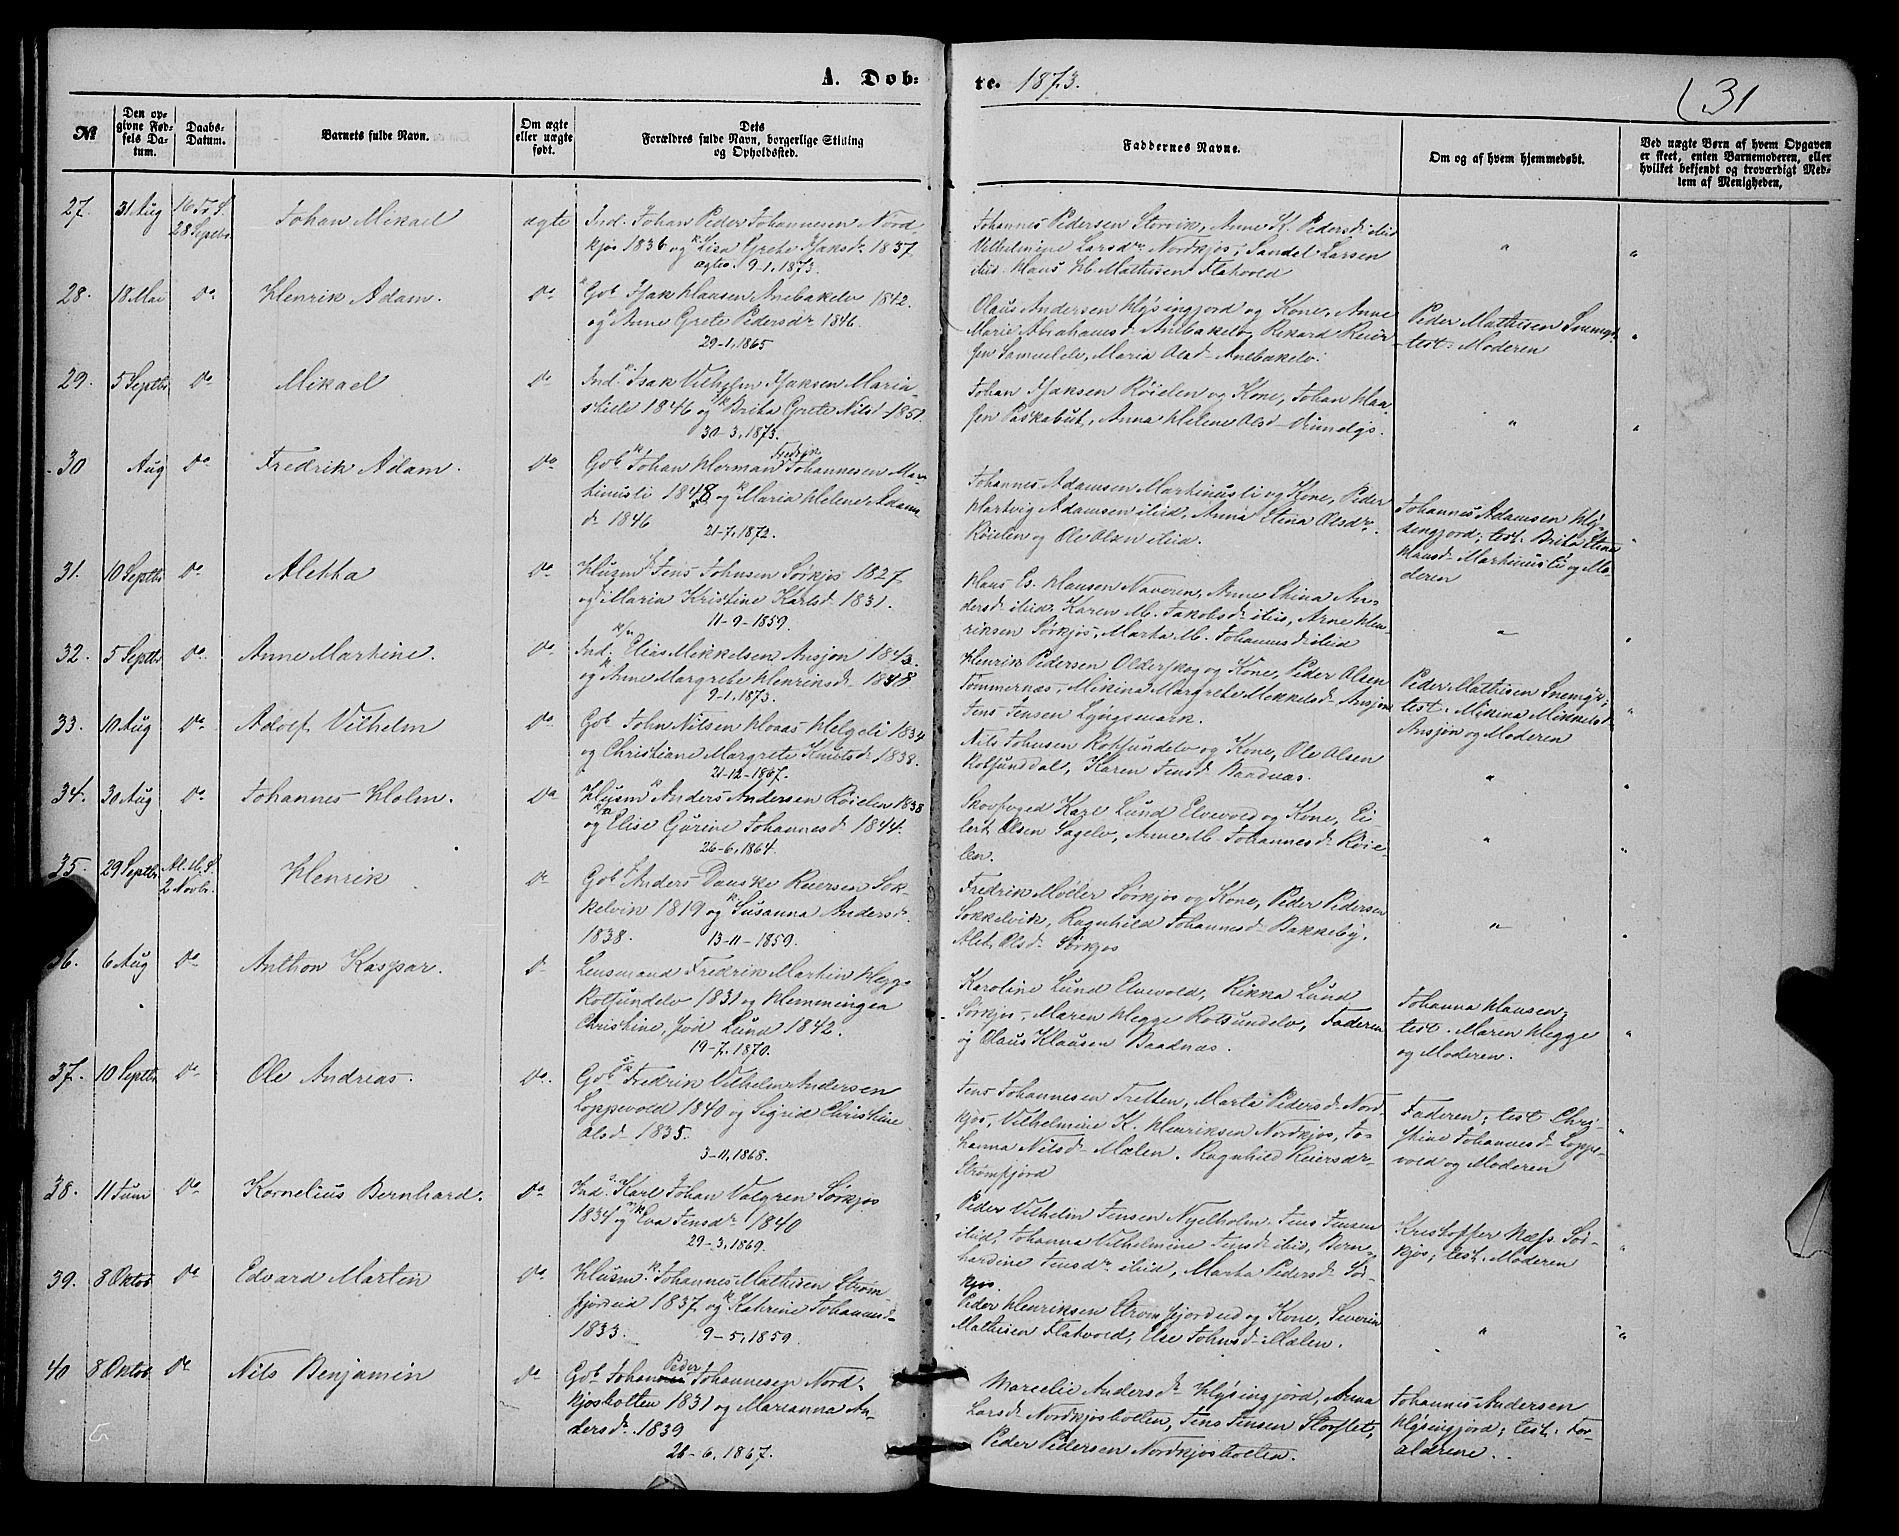 A. Dob-
te. 1873.
31
№
Den op-
givne Fød-
sels Da-
tum.
Daabs-
Datum.
Barnets fulde Navn.
Om ægte
eller uægte
født.
Dets
Forældres fulde Navn, borgerlige Stilling
og Opholdssted.
Faddernes Navne.
Om og af hvem hjemmedøbt.
Ved uægte Børn af hvem Opgaven
er skeet, enten Barnemoderen, eller
hvilket bekjendt og troværdigt Med-
lem af Menigheden.
27. 31 Aug 16 Tr. S.
28 Septbr
Johan Mikael
ægte
Ind. Johan Peder Johannesen Nord-
kjos 1836 og Lisa Grete Isaksd. 1837
9-1, 1873.
Johannes Pedersen Storvik, Anne K. Pedersd. ibid
Vilhelmine Larsdr. Nordkjos, Sandel Larsen
ibid. Hans Mathisen Flatvold
"
28. 18 Mai Do Henrik Adam. Do
Gbr Isak Hansen Anebakelv 1842.
og Anne Grete Pedersdr 1846.
29-1, 1865
Olaus Andersen Hysingjord og Kone, Anne
Marie Abrahamsd. Anebakelv, Rikard Reier-
sen Samuelelv, Maria Olsd. Anebakelv.
Peder Mathisen Snemyr.
test. Moderen
29. 5 Septbr Do Mikael Do
Ind. Isak Vilhelm Isaksen Maria-
1846 og Brita Grete Nilsd. 1851.
30-3, 1873.
Johan Isaksen Röielen og Kone, Johan Han-
sen Paskabut, Anna Helene Olsd.
"
30 Aug Do Fredrik Adam. Do
Gbr Johan Herman Fredrik Johannesen Mar-
tinusli 1848 og Maria Helene Adams
d. 1846
21-7, 1872.
Johannes Adamsen Martinusli og Kone, Peder
Hartvig Adamsen ibid, Anna Stina Olsdr.
Röielen og Ole Olsen ibid.
Johannes Adamsen Hy-
singjord; test. Brita Stina
Hansd. Martinusli og Mo-
deren
31. 10 Septbr Do Aletha Do
Husm Jens Johnsen Sørkjos 1827
og Maria Kristine Karlsd. 1831.
11-9-1859.
Hans Es. Hansen Naveren, Anne Stina An-
dersd. ibid, Karen M. Jakobsd. ibid, Arne Hen-
riksen Sørkjos, Marta M. Johannesd. ibid
"
32. 5 Septbr Do Anne Martine. Do
Ind. Elias Mikkelsen Ansjon 1843.
og Anne Margrete Henriksd. 1848.
9-1, 1873.
Henrik Pedersen Olderskog og Kone, Peder Olsen
Tömmernæs, Mikina Margrete Mikkelsd. Ansjon
Jens Jensen Lyngsmark.
Peder Mathisen Snemyr;
test. Mikina Mikkelsd.
Ansjon og Moderen
33. 10 Aug Do Adolf Vilhelm Do
Gbr John Nilsen Moaas Helgeli 1834
og Christiane Margrete Knutsd. 1838.
21-12-1867.
Nils Johnsen Rotsundelv og Kone, Ole Olsen
Rotsunddal, Karen Jensd. Baadnæs.
"
34. 30 Aug Do Johannes Holm. Do
Husm Anders Andersen Röielen 1838
og Elise Gurine Johannesd. 1844.
26-6, 1864.
Skovfoged Karl Lund Elvevold og Kone, Ei-
lert Olsen Sagelv, Anne M. Johannesd. Röie-
len.
"
35. 29 Septbr Al. H. S.
2 Novbr.
Henrik Do
Gbr Anders Danske Reiersen Sok-
kelvik 1819 og Susanna Andersd.
1838. 13-11-1859.
Fredrik Moller Sørkjos og Kone, Peder Pedersen
Sokkelvik, Ragnhild Johannesd. Bakkeby,
Alet. Olsd. Sørkjos
"
36. 6 Aug Do Anthon Kaspar. Do
Lensmand Fredrik Martin Hegge
Rotsundelv 1831 og Hemmingea
Christine, fød Lund 1842.
19-7, 1870.
Karoline Lund Elvevold, Rikka Lund
Sørkjos, Maren Hegge Rotsundelv, Faderen
og Olaus Klausen Baadnæs.
Johanna Hansen;
test. Maren Hegge
og Moderen.
37. 10 Septbr Do Ole Andreas. Do
Gbr Fredrik Vilhelm Andersen
Loppevold 1840 og Sigrid Christine
Olsd. 1835.
3-11, 1868.
Jens Johannesen Tretten, Marta Pedersd. Nord-
kjos, Vilhelmine K. Henriksen Nordkjos, Jo-
hanna Nilsd. Mælen. Ragnhild Reiersdr.
Strømfjord
Faderen; test Chri-
stine Johannesd. Loppe-
vold og Moderen
38. 11 Juni Do Kornelius Bernhard. Do
Ind. Karl Johan Valgren Sørkjos
1834 og Eva Jensdr 1840
29-3, 1869.
Peder Vilhelm Jensen Nyelholm. Jens Jensen
ibid, Johanna Vilhelmine Jensd. ibid, Bern-
hardine Jensdr. ibid, Marta Pedersd. Sør-
kjos
Kristoffer Næss Sør-
kjos; test. Moderen
39. 8 Oktob Do Edvard Martin Do
Husm. Johannes Mathisen Strøm-
fjordeid 1837 og Katrine Johannesd.
1833. 9-5, 1859.
Peder Henriksen Strømfjordeid og Kone, Severin
Mathisen Flatvold, Else Johnsd. Mælen.
"
40 8 Oktob Do Nils Benjamin Do
Gbr Johan Peder Johannesen Nord-
kjosbotten 1831 og Marianna An-
dersdr. 1839
26-6, 1867.
Marcelie Andersdr Hysingjord, Anna
Larsd. Nordkjosbotten, Jens Jensen Storslet,
Peder Pedersen Nordkjosbotten.
Johannes Andersen
Hysingjord; test. For-
ældrene.